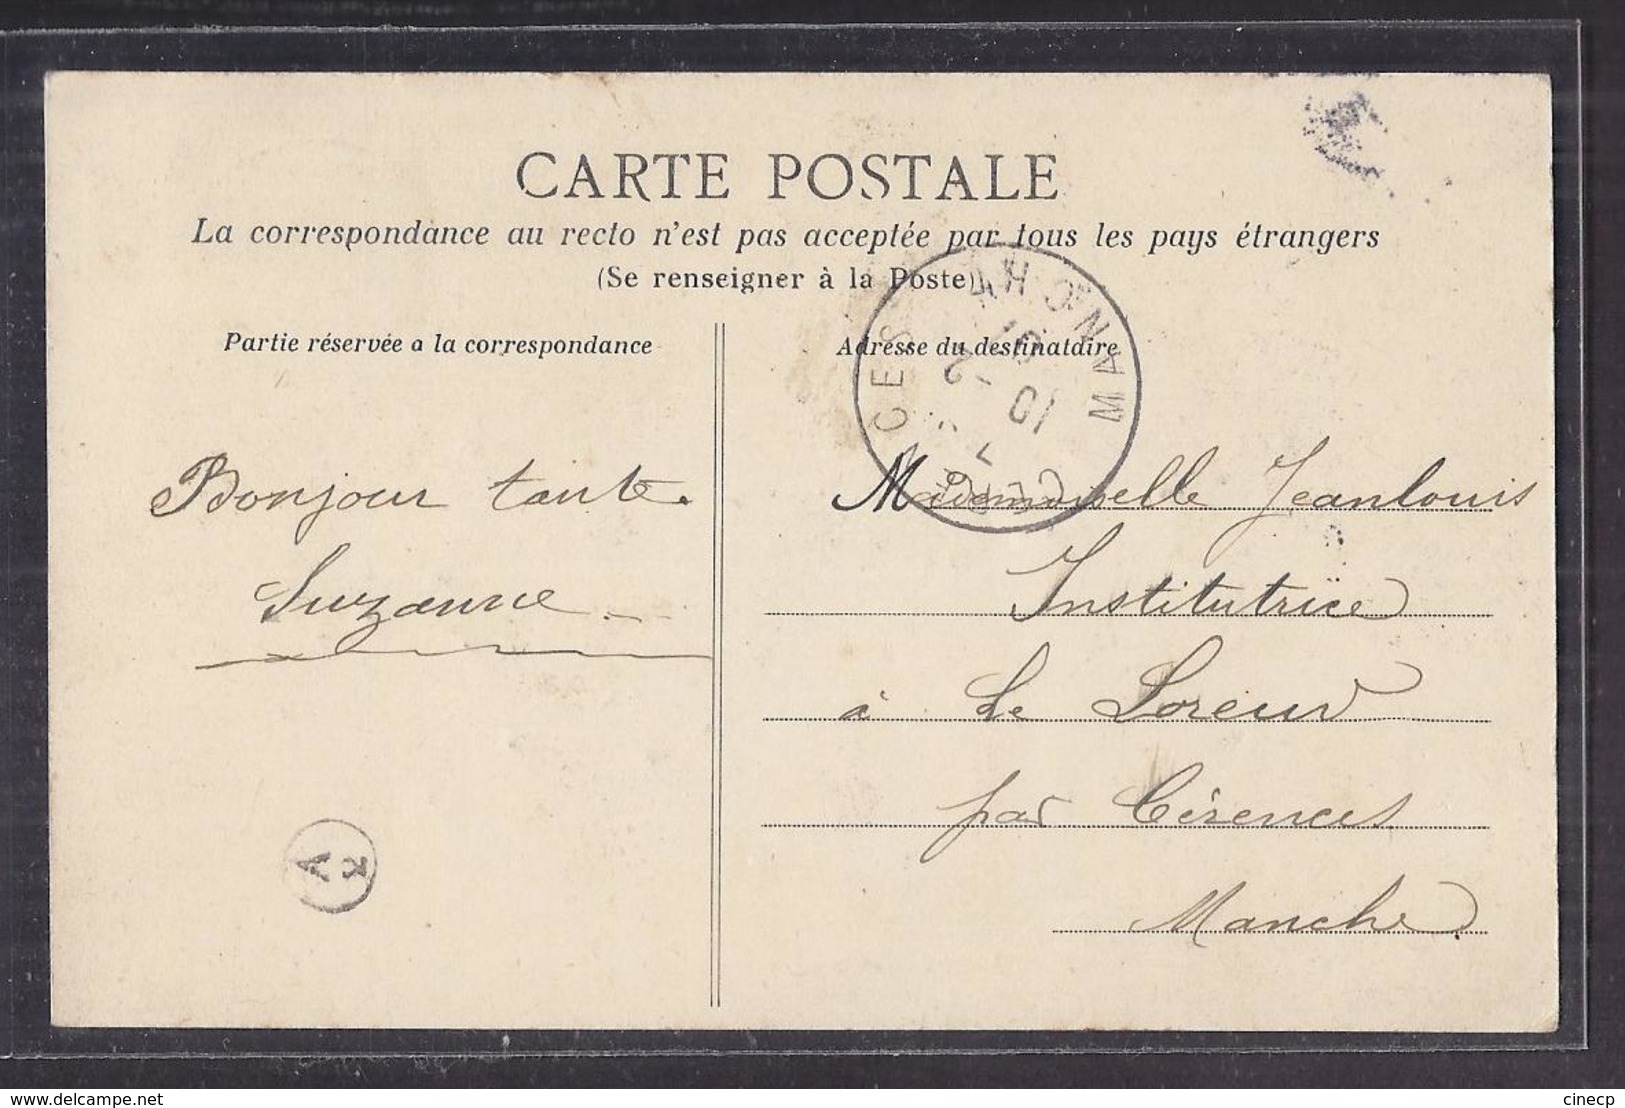 CARTE POSTALE
La correspondance au recto n'est pas acceptée par tous les pays étrangers
(Se renseigner à la Poste)
Partie réservée a la correspondance
Adresse du destinataire
MANCHE
CES
Bonjour tante
Suzanne
Mademoiselle Jeanlouis
Institutrice
à Le Loreur
par Cérences
Manche
A
delcampe.net
cinecp